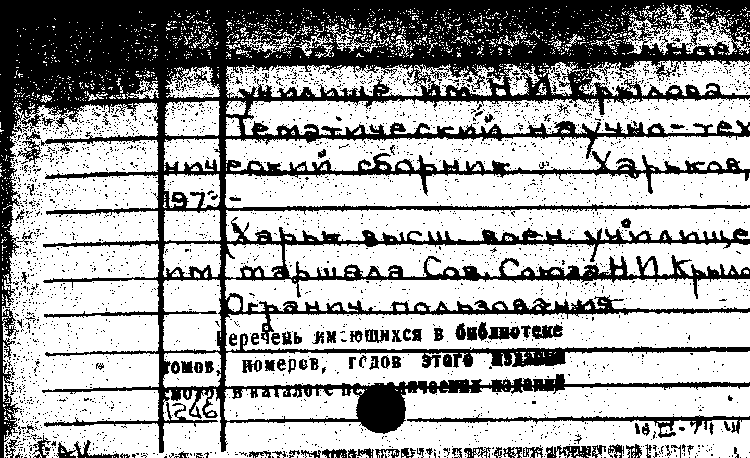 училище им Н И Крылова
Тематический научно-тех
нический сборник. Харьков,
197 -
Харьк высш. воен училище
им. маршала Сов. Союза Н И Крыло
Огранич. пользования
Перечень имеющихся в библиотеке
томов, номеров, годов этого издания
смотри в каталоге периодических изданий
1246